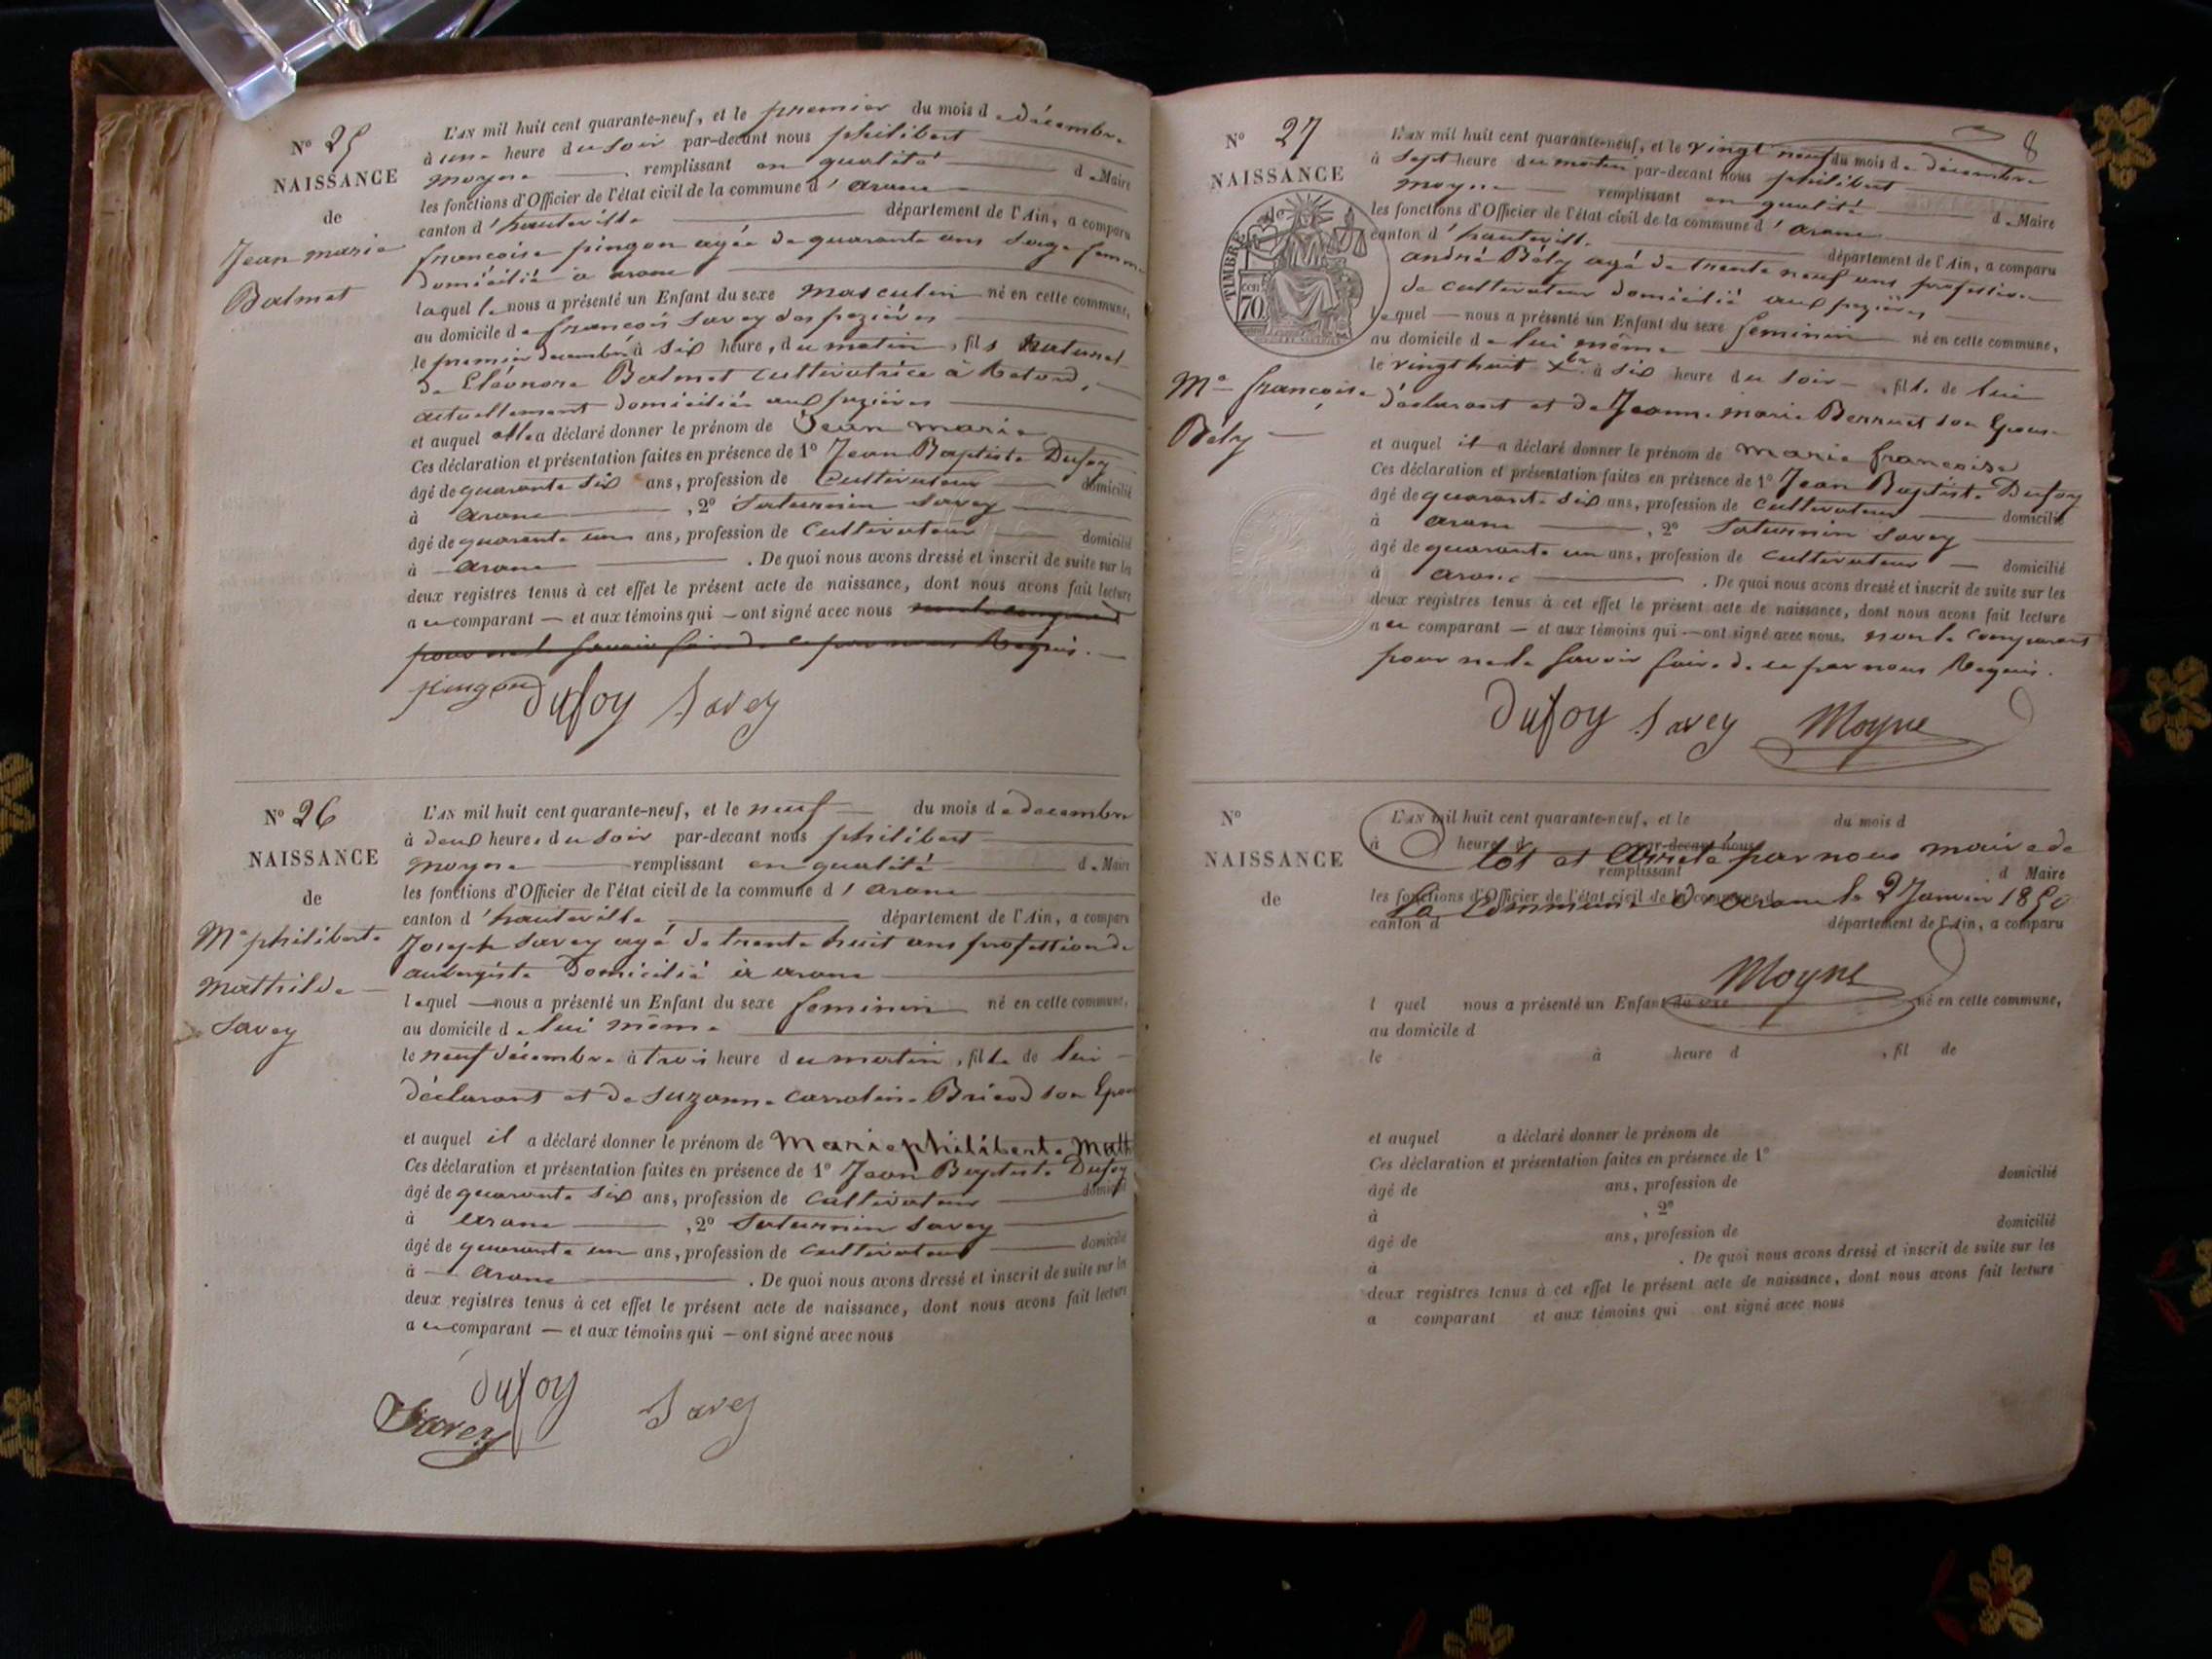 N° 25
NAISSANCE
de
Jean marie
Balmet
L'AN mil huit cent quarante-neuf, et le premier du mois de décembre
à une heure du soir par-devant nous philibert
moyne remplissant en qualité de Maire
les fonctions d'Officier de l'état civil de la commune d'aranc
canton d'hauteville département de l'Ain, a comparu
francoise pingon agée de quarante ans sage femme
domiciliée à aranc
laquelle nous a présenté un Enfant du sexe masculin né en cette commune,
au domicile de françois Savey des pezières
le premier décembre à six heure, du matin, fils naturel
de Eléonore Balmet cultivatrice à
actuellement domiciliée aux pezières
et auquel elle a déclaré donner le prénom de Jean marie
Ces déclaration et présentation faites en présence de 1° Jean Baptiste Dufoy
âgé de quarante six ans, profession de Cultivateur domicilié
à aranc, 2° Saturnin Savey
âgé de quarante un ans, profession de Cultivateur domicilié
à aranc. De quoi nous avons dressé et inscrit de suite sur les
deux registres tenus à cet effet le présent acte de naissance, dont nous avons fait lecture
au comparant — et aux témoins qui — ont signé avec nous non le comparant
pour ne le savoir faire de ce par nous Requis.
pingon Dufoy Savey
N° 26
NAISSANCE
de
Me philiberte
Mathilde
Savey
L'AN mil huit cent quarante-neuf, et le neuf du mois de décembre
à deux heures du soir par-devant nous philibert
moyne remplissant en qualité de Maire
les fonctions d'Officier de l'état civil de la commune d'aranc
canton d'hauteville département de l'Ain, a comparu
Joseph Savey agé de trente huit ans profession de
aubergiste Domicilié à aranc
lequel — nous a présenté un Enfant du sexe feminin né en cette commune,
au domicile de lui même
le neuf décembre à trois heure du matin, fille de lui
déclarant et de Suzanne Carroline Bricod son Epouse
et auquel il a déclaré donner le prénom de Marie philiberte Math
Ces déclaration et présentation faites en présence de 1° Jean Baptiste Dufoy
âgé de quarante six ans, profession de Cultivateur domicilié
à aranc, 2° Saturnin Savey
âgé de quarante un ans, profession de Cultivateur domicilié
à aranc. De quoi nous avons dressé et inscrit de suite sur les
deux registres tenus à cet effet le présent acte de naissance, dont nous avons fait lecture
au comparant — et aux témoins qui — ont signé avec nous
Dufoy
Savey Savey
8
N° 27
NAISSANCE
TIMBRE
cen
70
Me françoise
Bély
L'AN mil huit cent quarante-neuf, et le vingt neuf du mois de décembre
à Sept heure du matin par-devant nous philibert
moyne remplissant en qualité de Maire
les fonctions d'Officier de l'état civil de la commune d'aranc
canton d'hauteville département de l'Ain, a comparu
andré Bély agé de trente neuf ans profession
de cultivateur domicilié aux pezières
lequel — nous a présenté un Enfant du sexe feminin né en cette commune,
au domicile de lui même
le vingt huit Xbre à six heure du soir, fille de lui
déclarant et de Jeanne marie Berruet son Epouse
et auquel il a déclaré donner le prénom de marie françoise
Ces déclaration et présentation faites en présence de 1° Jean Baptiste Dufoy
âgé de quarante six ans, profession de cultivateur domicilié
à aranc, 2° Saturnin Savey
âgé de quarante un ans, profession de cultivateur domicilié
à aranc. De quoi nous avons dressé et inscrit de suite sur les
deux registres tenus à cet effet le présent acte de naissance, dont nous avons fait lecture
au comparant — et aux témoins qui — ont signé avec nous. non le comparant
pour ne le savoir faire de ce par nous Requis.
Dufoy Savey Moyne
N°
NAISSANCE
de
L'AN mil huit cent quarante-neuf, et le du mois d
à heure d par-devant nous
Clot et Arreté par nous maire de
remplissant d Maire
les fonctions d'Officier de l'état civil de la commune d
la Commune d'aranc le 2 Janvier 1850
canton d département de l'Ain, a comparu
Moyne
l quel nous a présenté un Enfant du sexe né en cette commune,
au domicile d
le à heure d , fil de
et auquel a déclaré donner le prénom de
Ces déclaration et présentation faites en présence de 1°
âgé de ans, profession de domicilié
à , 2°
âgé de ans, profession de domicilié
à . De quoi nous avons dressé et inscrit de suite sur les
deux registres tenus à cet effet le présent acte de naissance, dont nous avons fait lecture
a comparant et aux témoins qui ont signé avec nous